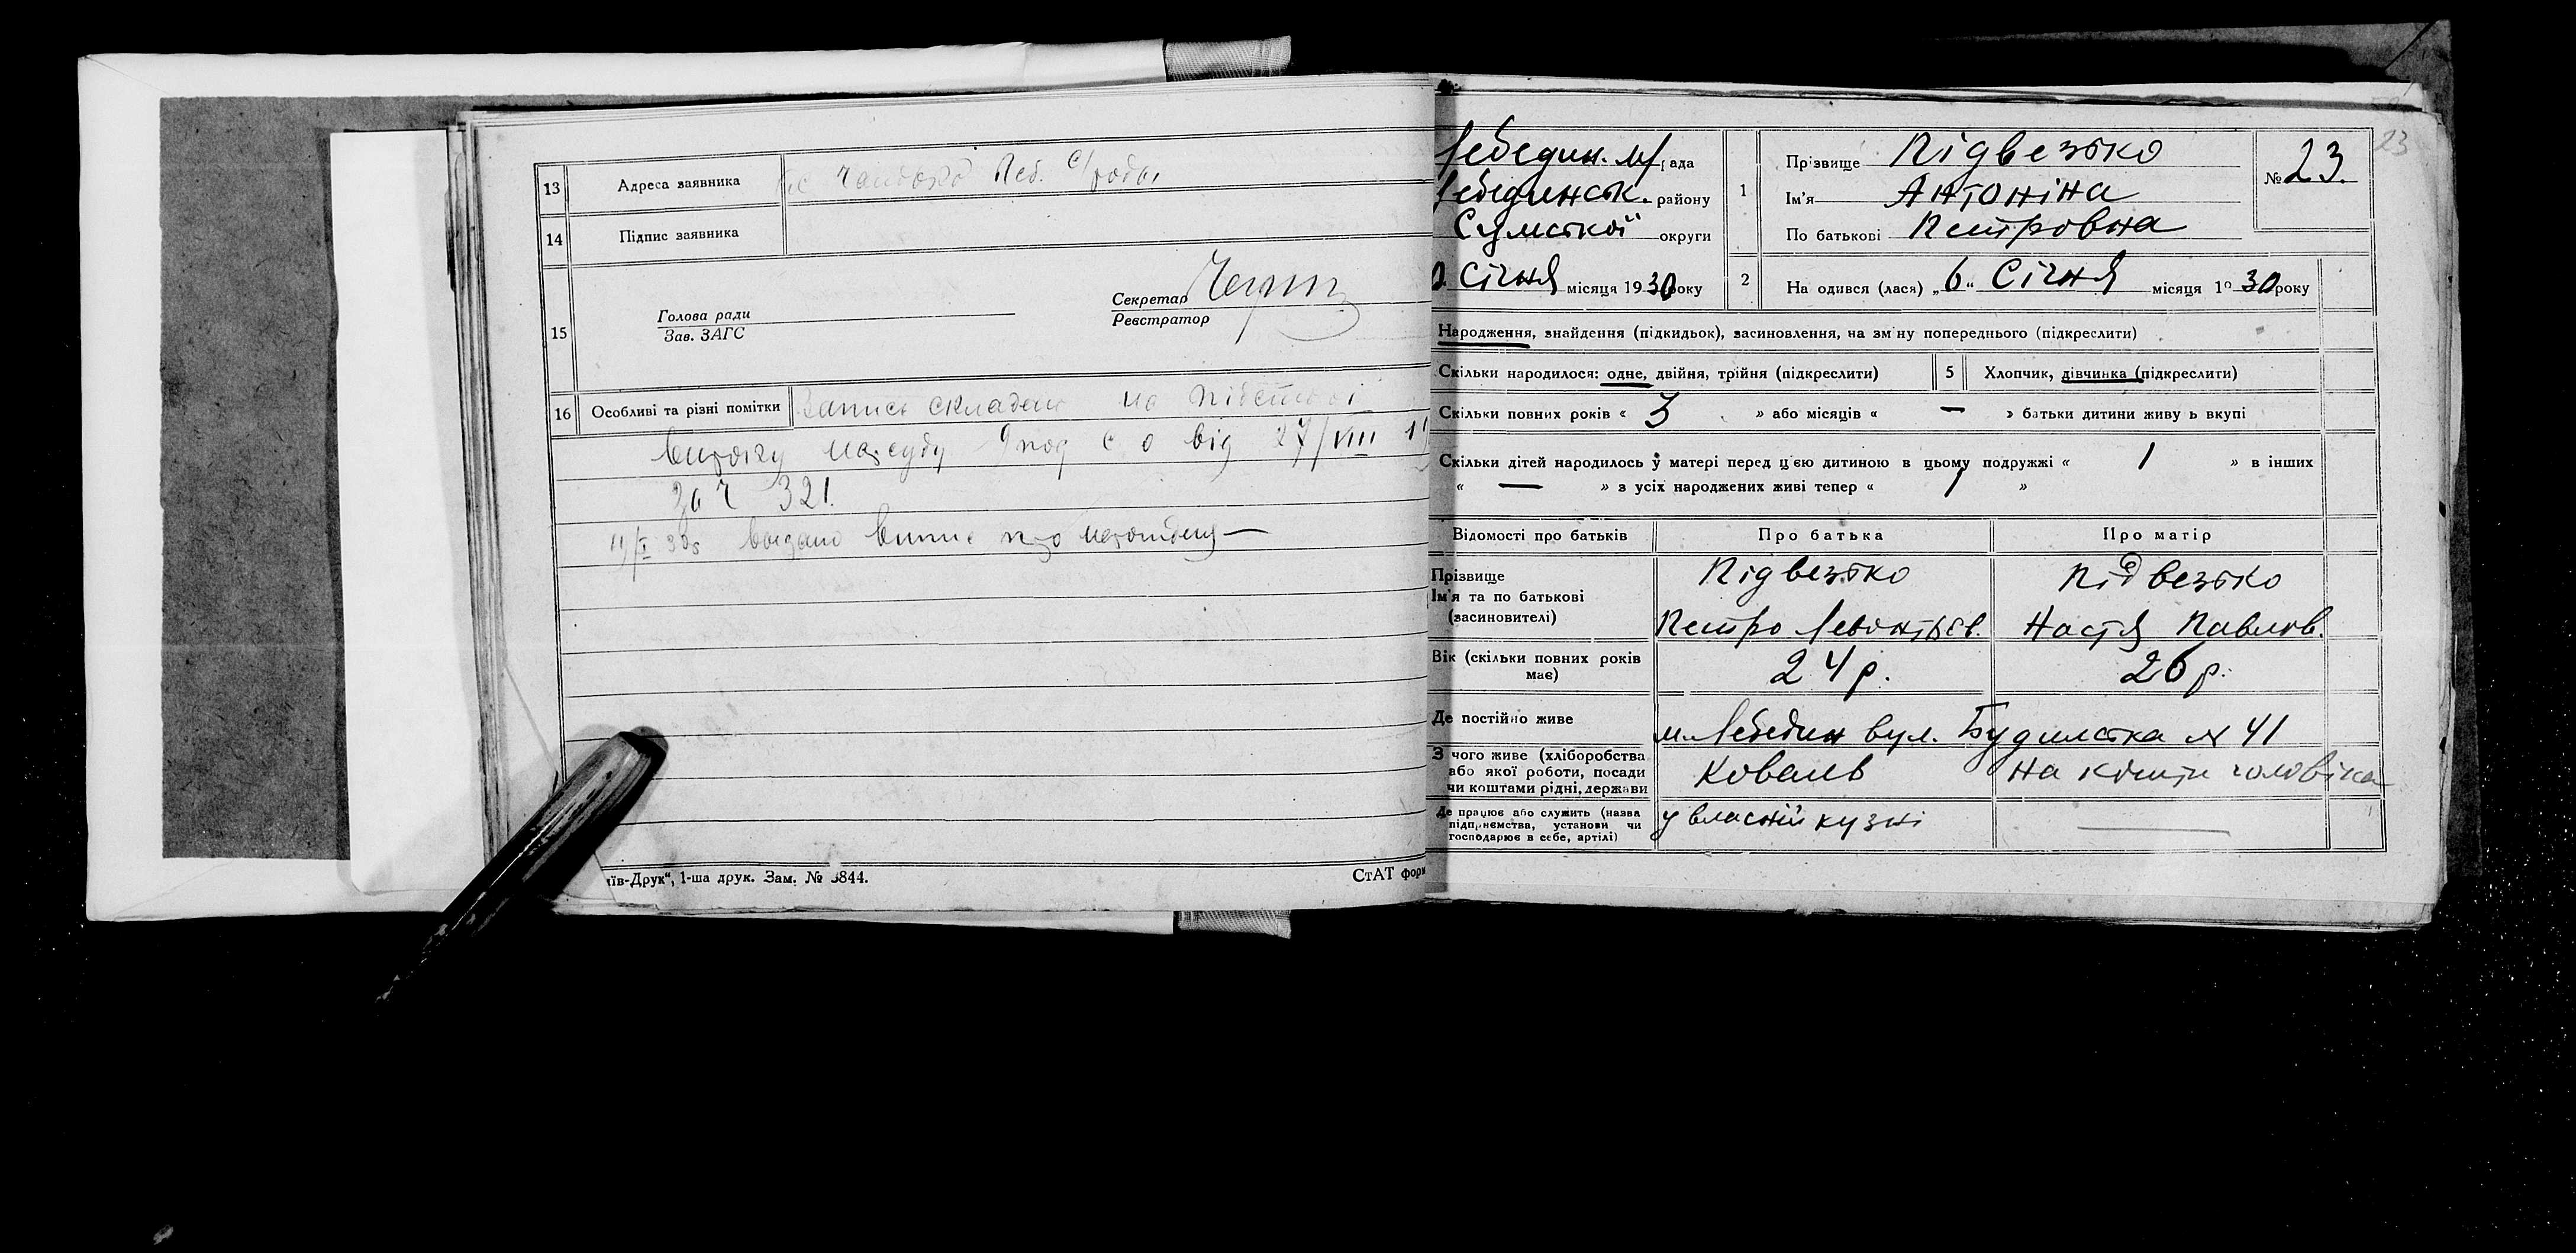 13 Адреса заявника
14 Підпис заявника
15 Голова ради
Зав. ЗАГС
Секретар
Реєстратор
16 Особливі та різні помітки Запись складено на підставі
витягу нарсуду від 27/VIII
за ч 321.
видано
їв-Друк“, 1-ша друк. Зам. № 3844.
СтАТ форм
23
Лебедин. м/рада
Лебединськ. району
Сумської округи
Січня місяця 1930 року
1 Прізвище Підвезько
Ім'я Антоніна
По батькові Петровна
№ 23.
2 На одився (лася) „6“ Січня місяця 1930 року
Народження, знайдення (підкидьок), засиновлення, на зміну попереднього (підкреслити)
Скільки народилося: одне, двійня, трійня (підкреслити) 5 Хлопчик, дівчинка (підкреслити)
Скільки повних років « 3 » або місяців « — » батьки дитини живу ь вкупі
Скільки дітей народилось у матері перед цією дитиною в цьому подружжі « 1 » в інших
« — » з усіх народжених живі тепер « 1 »
Відомості про батьків Про батька Про матір
Прізвище Підвезько Підвезько
Ім'я та по батькові
(засиновителі) Петро Левонтьєв. Настя Павлов.
Вік (скільки повних років має) 24 р. 26 р.
Де постійно живе м. Лебедин вул. Будилська № 41
З чого живе (хліборобства
або якої роботи, посади
чи коштами рідні, держави Коваль на кошти чоловіка
Де працює або служить (назва
підприємства, установи чи
господарює в себе, артілі) у власній кузні —